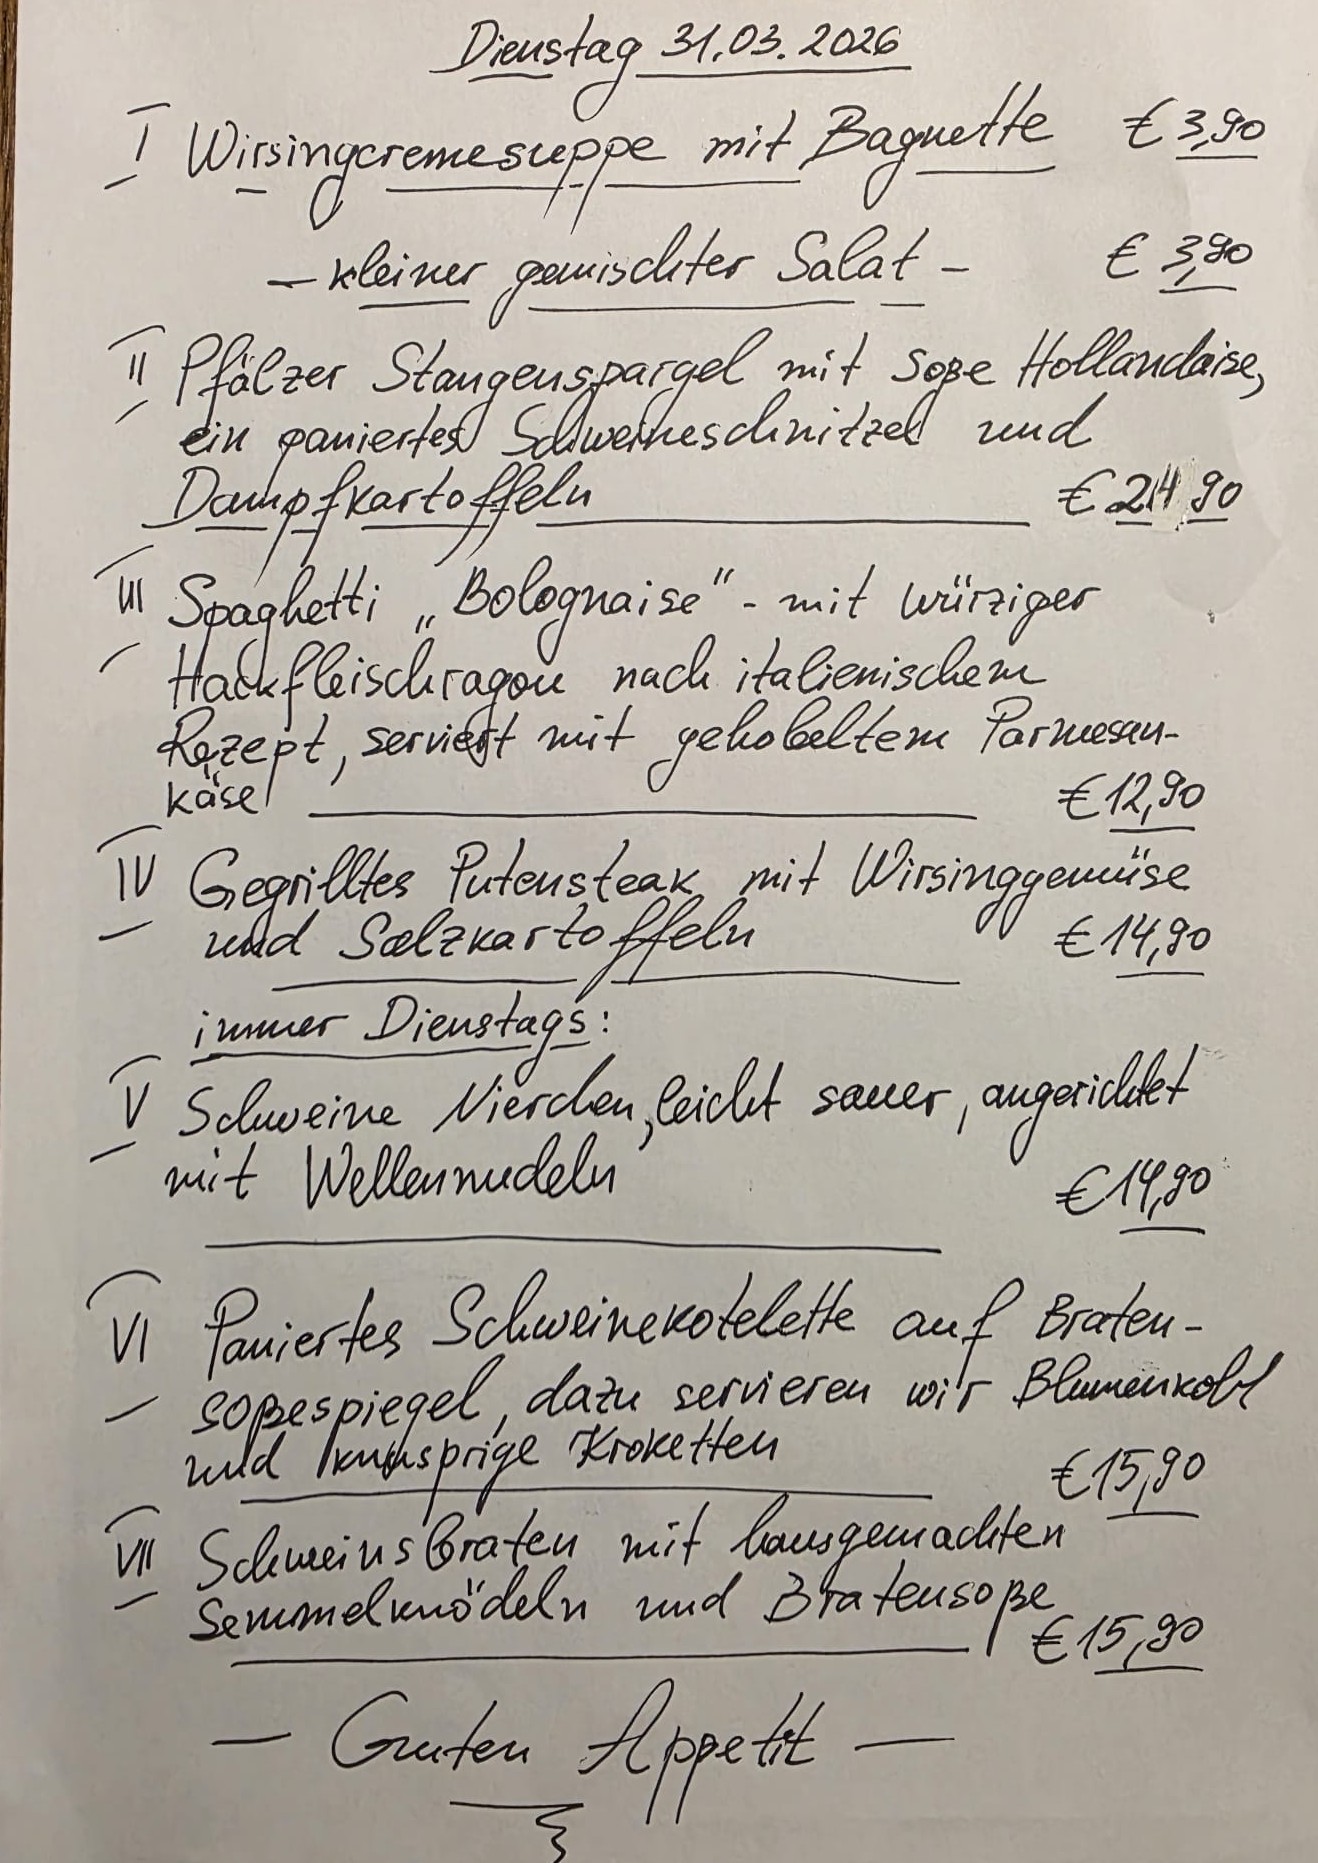 Dienstag 31.03.2026
I Wirsingcremesuppe mit Baguette € 3,90
- kleiner gemischter Salat - € 3,90
II Pfälzer Stangenspargel mit Soße Hollandaise,
ein paniertes Schweineschnitzel und
Dampfkartoffeln € 24,90
III Spaghetti „Bolognaise" - mit würziger
Hackfleischragou nach italienischem
Rezept, serviert mit gehobeltem Parmesan-
käse € 12,90
IV Gegrilltes Putensteak mit Wirsinggemüse
und Salzkartoffeln € 14,90
immer Dienstags:
V Schweine Nierchen, leicht sauer, angerichtet
mit Wellennudeln € 14,90
VI Paniertes Schweinekotelette auf Braten-
soßespiegel, dazu servieren wir Blumenkohl
und knusprige Kroketten € 15,90
VII Schweinsbraten mit hausgemachten
Semmelknödeln und Bratensoße
€ 15,90
- Guten Appetit -